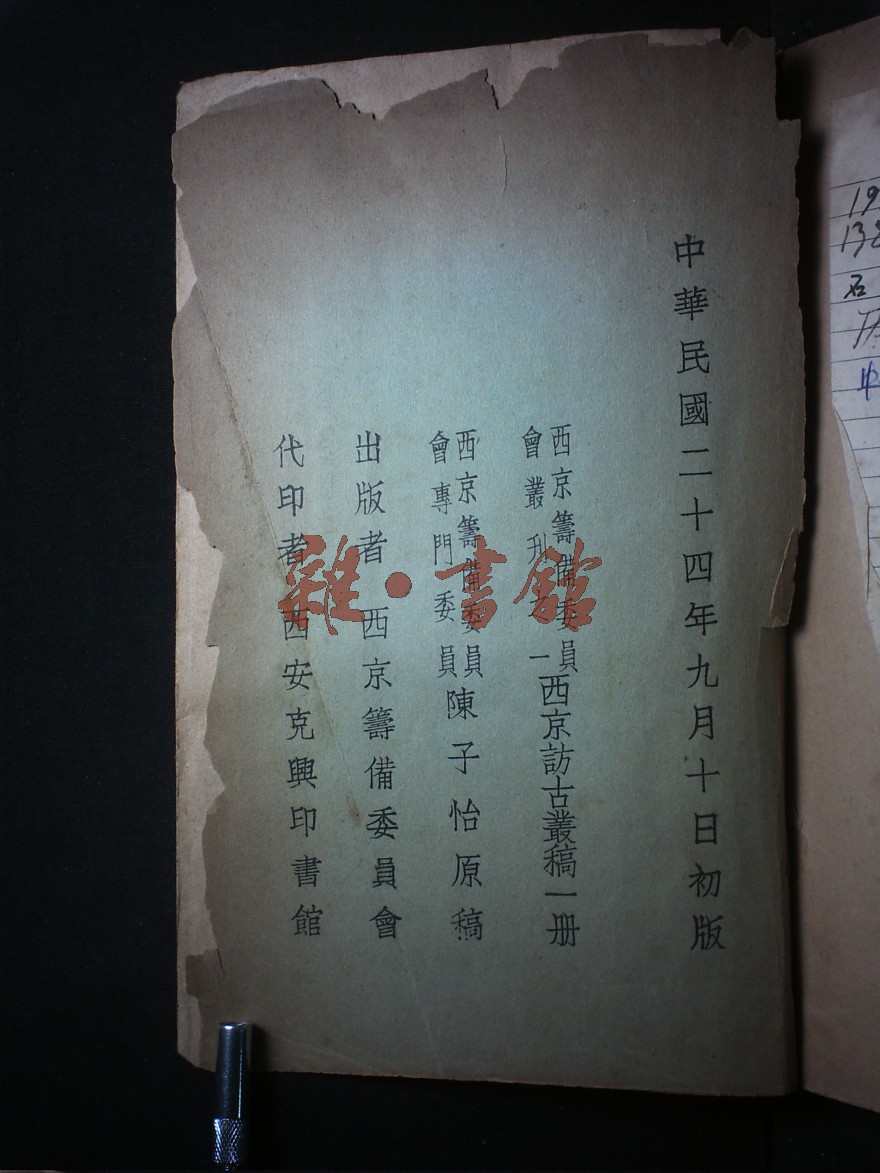 中華民國二十四年九月十日初版
西京籌備委員
會叢刊之一
西京訪古叢稿一册
西京籌備委員
會專門委員
陳子怡原稿
出版者 西京籌備委員會
代印者 西安克興印書館
雜·書館
19
132
石